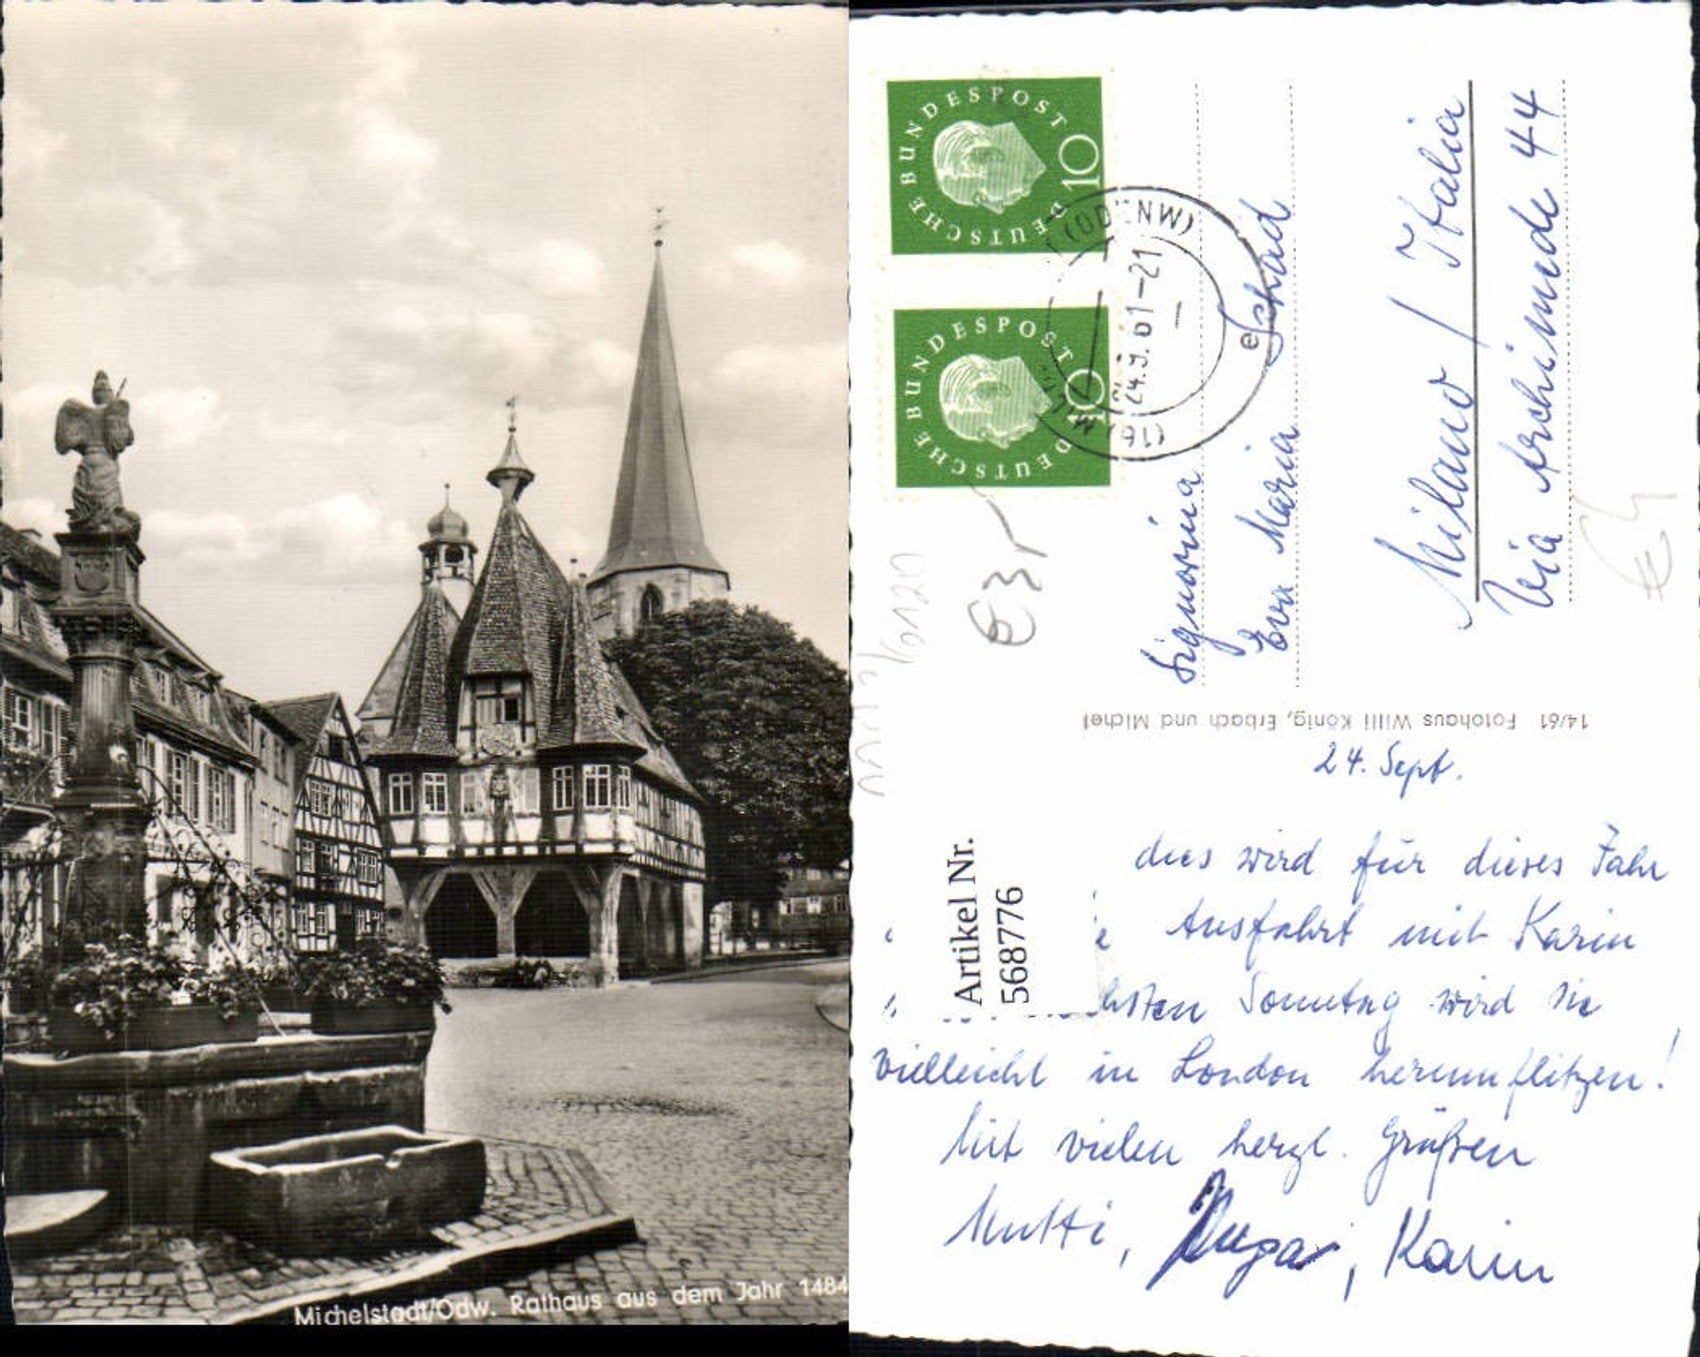 Michelstadt/Odw. Rathaus aus dem Jahr 1484
DEUTSCHE BUNDESPOST
10
DEUTSCHE BUNDESPOST
10
(ODENW)
24.9.61-21
(16) M
e
Signorina
Eva Maria Schad
Milano / Italia
Via Archimede 44
€3,-
14/61 Fotohaus Willi König, Erbach und Michel
24. Sept.
Artikel Nr.
568776
dies wird für dieses Jahr
e Ausfahrt mit Karin
hsten Sonntag wird sie
vielleicht in London herumflitzen!
Mit vielen herzl. Grüßen
Mutti, , Karin